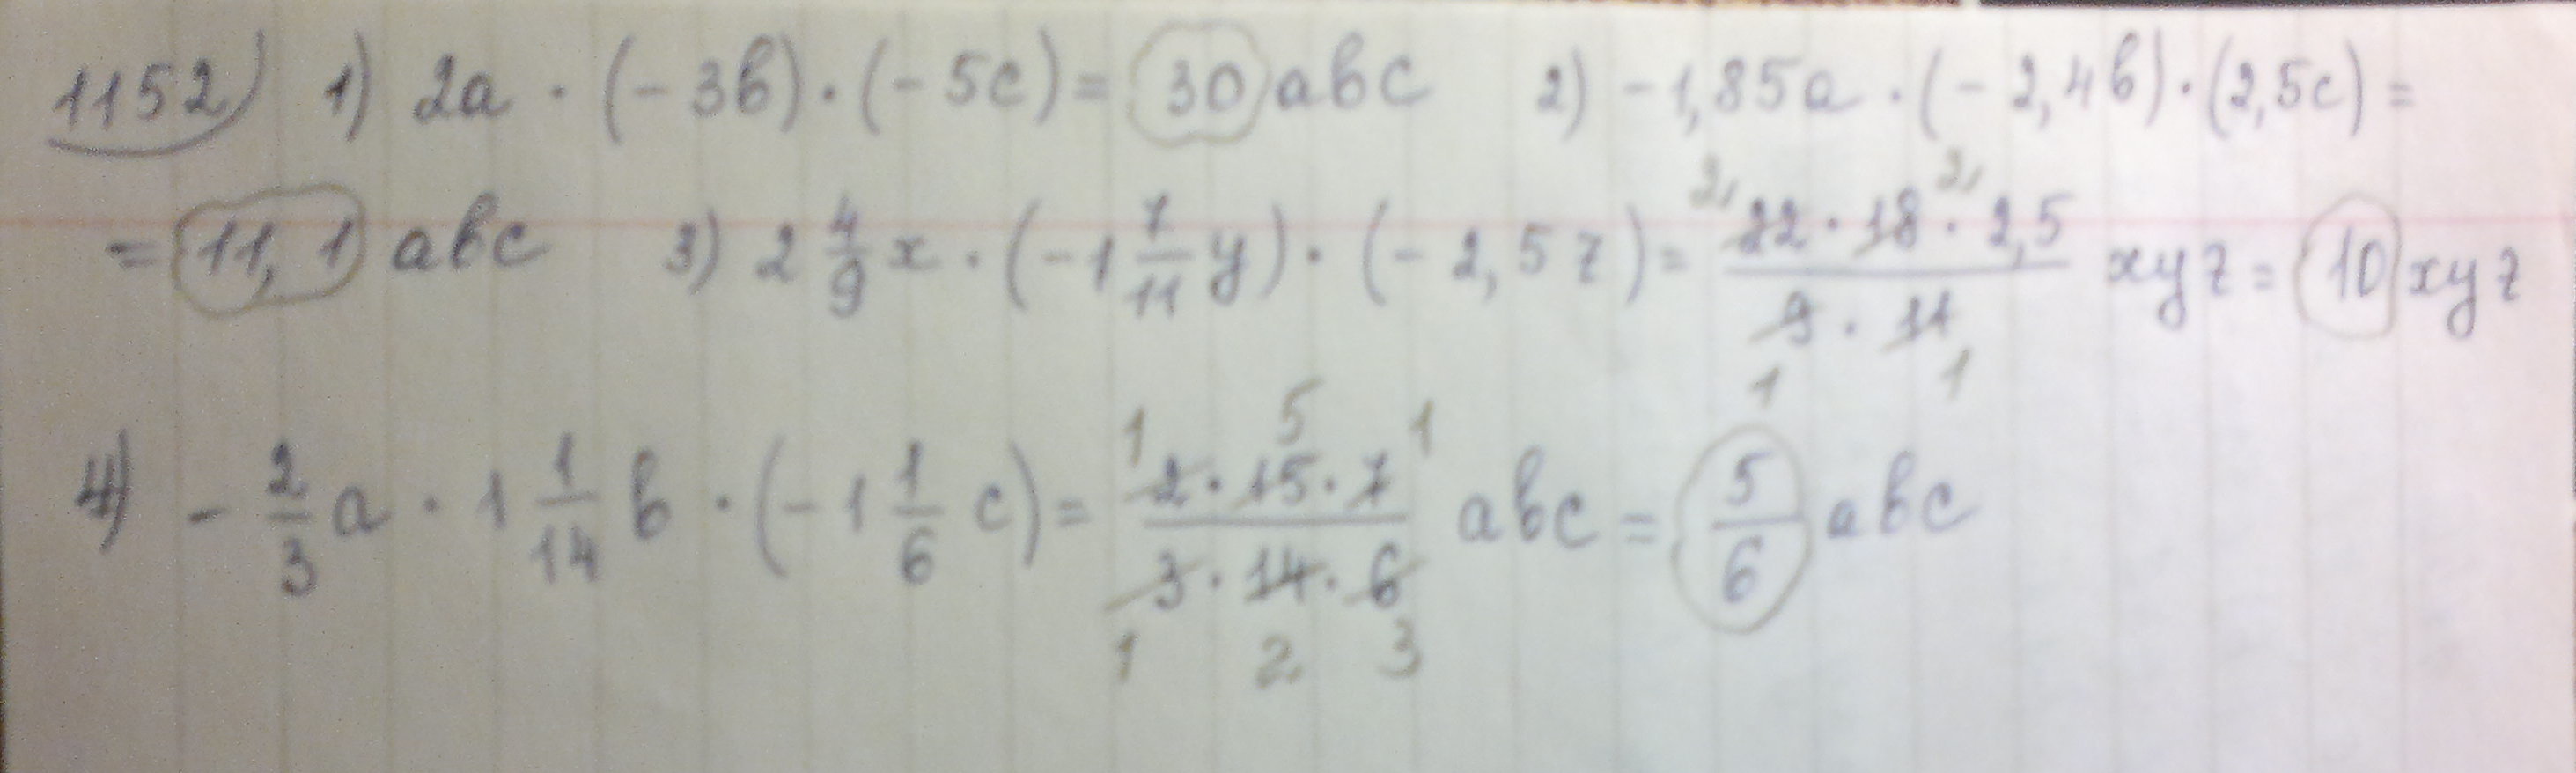 1152) 1) 2a · (-3b) · (-5c) = 30 abc 2) -1,85a · (-2,4b) · (2,5c) =
= 11,1 abc 3) 2 4/9 x · (-1 7/11 y) · (-2,5z) = (22 · 18 · 2,5)/(9 · 11) xyz = 10 xyz
2 2
1 1
4) -2/3 a · 1 1/14 b · (-1 1/6 c) = (2 · 15 · 7)/(3 · 14 · 6) abc = 5/6 abc
1 5 1
1 2 3